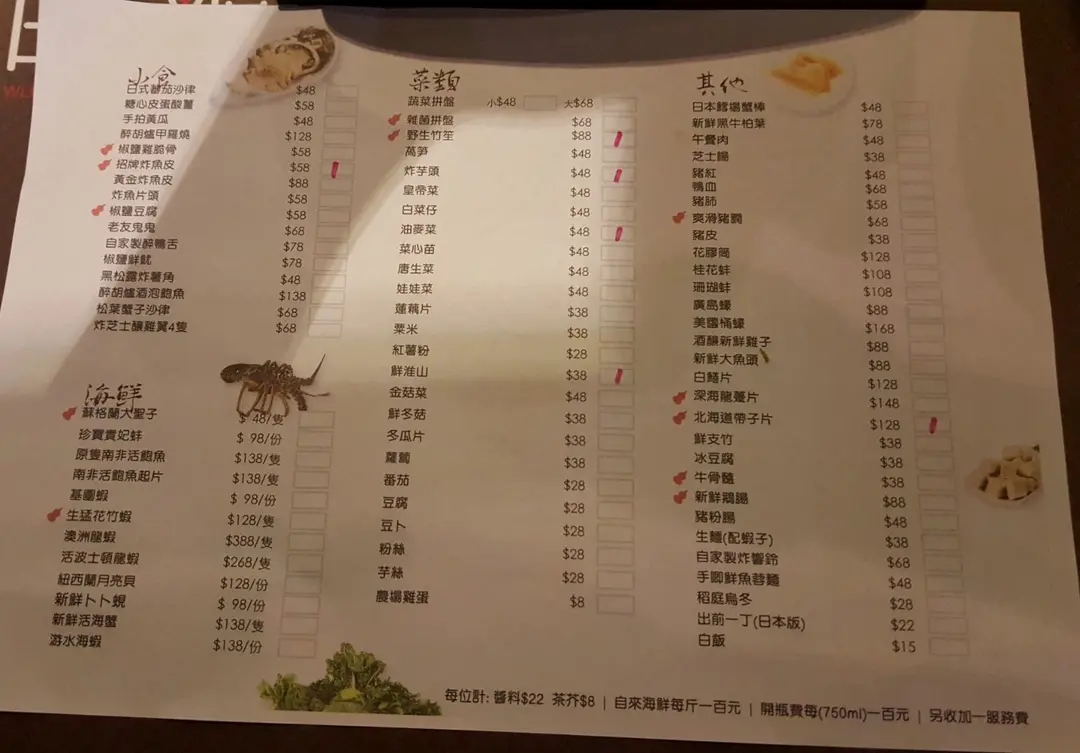 小食
日式蕃茄沙律 $48
糖心皮蛋酸薑 $58
手拍黃瓜 $48
醉胡爐甲羅燒 $128
椒鹽雞脆骨 $58
招牌炸魚皮 $58
黃金炸魚皮 $88
炸魚片頭 $58
椒鹽豆腐 $58
老友鬼鬼 $68
自家製醉鴨舌 $78
椒鹽鮮魷 $78
黑松露炸薯角 $48
醉胡爐酒泡鮑魚 $138
松葉蟹子沙律 $68
炸芝士釀雞翼4隻 $68
海鮮
蘇格蘭大聖子 $ 48/隻
珍寶貴妃蚌 $ 98/份
原隻南非活鮑魚 $138/隻
南非活鮑魚起片 $138/隻
基圍蝦 $ 98/份
生猛花竹蝦 $128/隻
澳洲龍蝦 $388/隻
活波士頓龍蝦 $268/隻
紐西蘭月亮貝 $128/份
新鮮卜卜蜆 $ 98/份
新鮮活海蟹 $138/隻
游水海蝦 $138/份
菜類
蔬菜拼盤 小$48 大$68
雜菌拼盤 $68
野生竹笙 $88
萵笋 $48
炸芋頭 $48
皇帝菜 $48
白菜仔 $48
油麥菜 $48
菜心苗 $48
唐生菜 $48
娃娃菜 $48
蓮藕片 $38
粟米 $38
紅薯粉 $28
鮮淮山 $38
金菇菜 $48
鮮冬菇 $38
冬瓜片 $38
蘿蔔 $38
番茄 $28
豆腐 $28
豆卜 $28
粉絲 $28
芋絲 $28
農場雞蛋 $8
其他
日本鱈場蟹棒 $48
新鮮黑牛柏葉 $78
午餐肉 $48
芝士腸 $38
豬紅 $48
鴨血 $68
豬肺 $58
爽滑豬膶 $68
豬皮 $38
花膠筒 $128
桂花蚌 $108
珊瑚蚌 $108
廣島蠔 $88
美國桶蠔 $168
酒釀新鮮雞子 $88
新鮮大魚頭 $88
白鱔片 $128
深海龍躉片 $148
北海道帶子片 $128
鮮支竹 $38
冰豆腐 $38
牛骨髓 $38
新鮮鵝腸 $88
豬粉腸 $48
生麵(配蝦子) $38
自家製炸響鈴 $68
手唧鮮魚蓉麵 $48
稻庭烏冬 $28
出前一丁(日本版) $22
白飯 $15
每位計: 醬料$22 茶芥$8 | 自來海鮮每斤一百元 | 開瓶費每(750ml)一百元 | 另收加一服務費